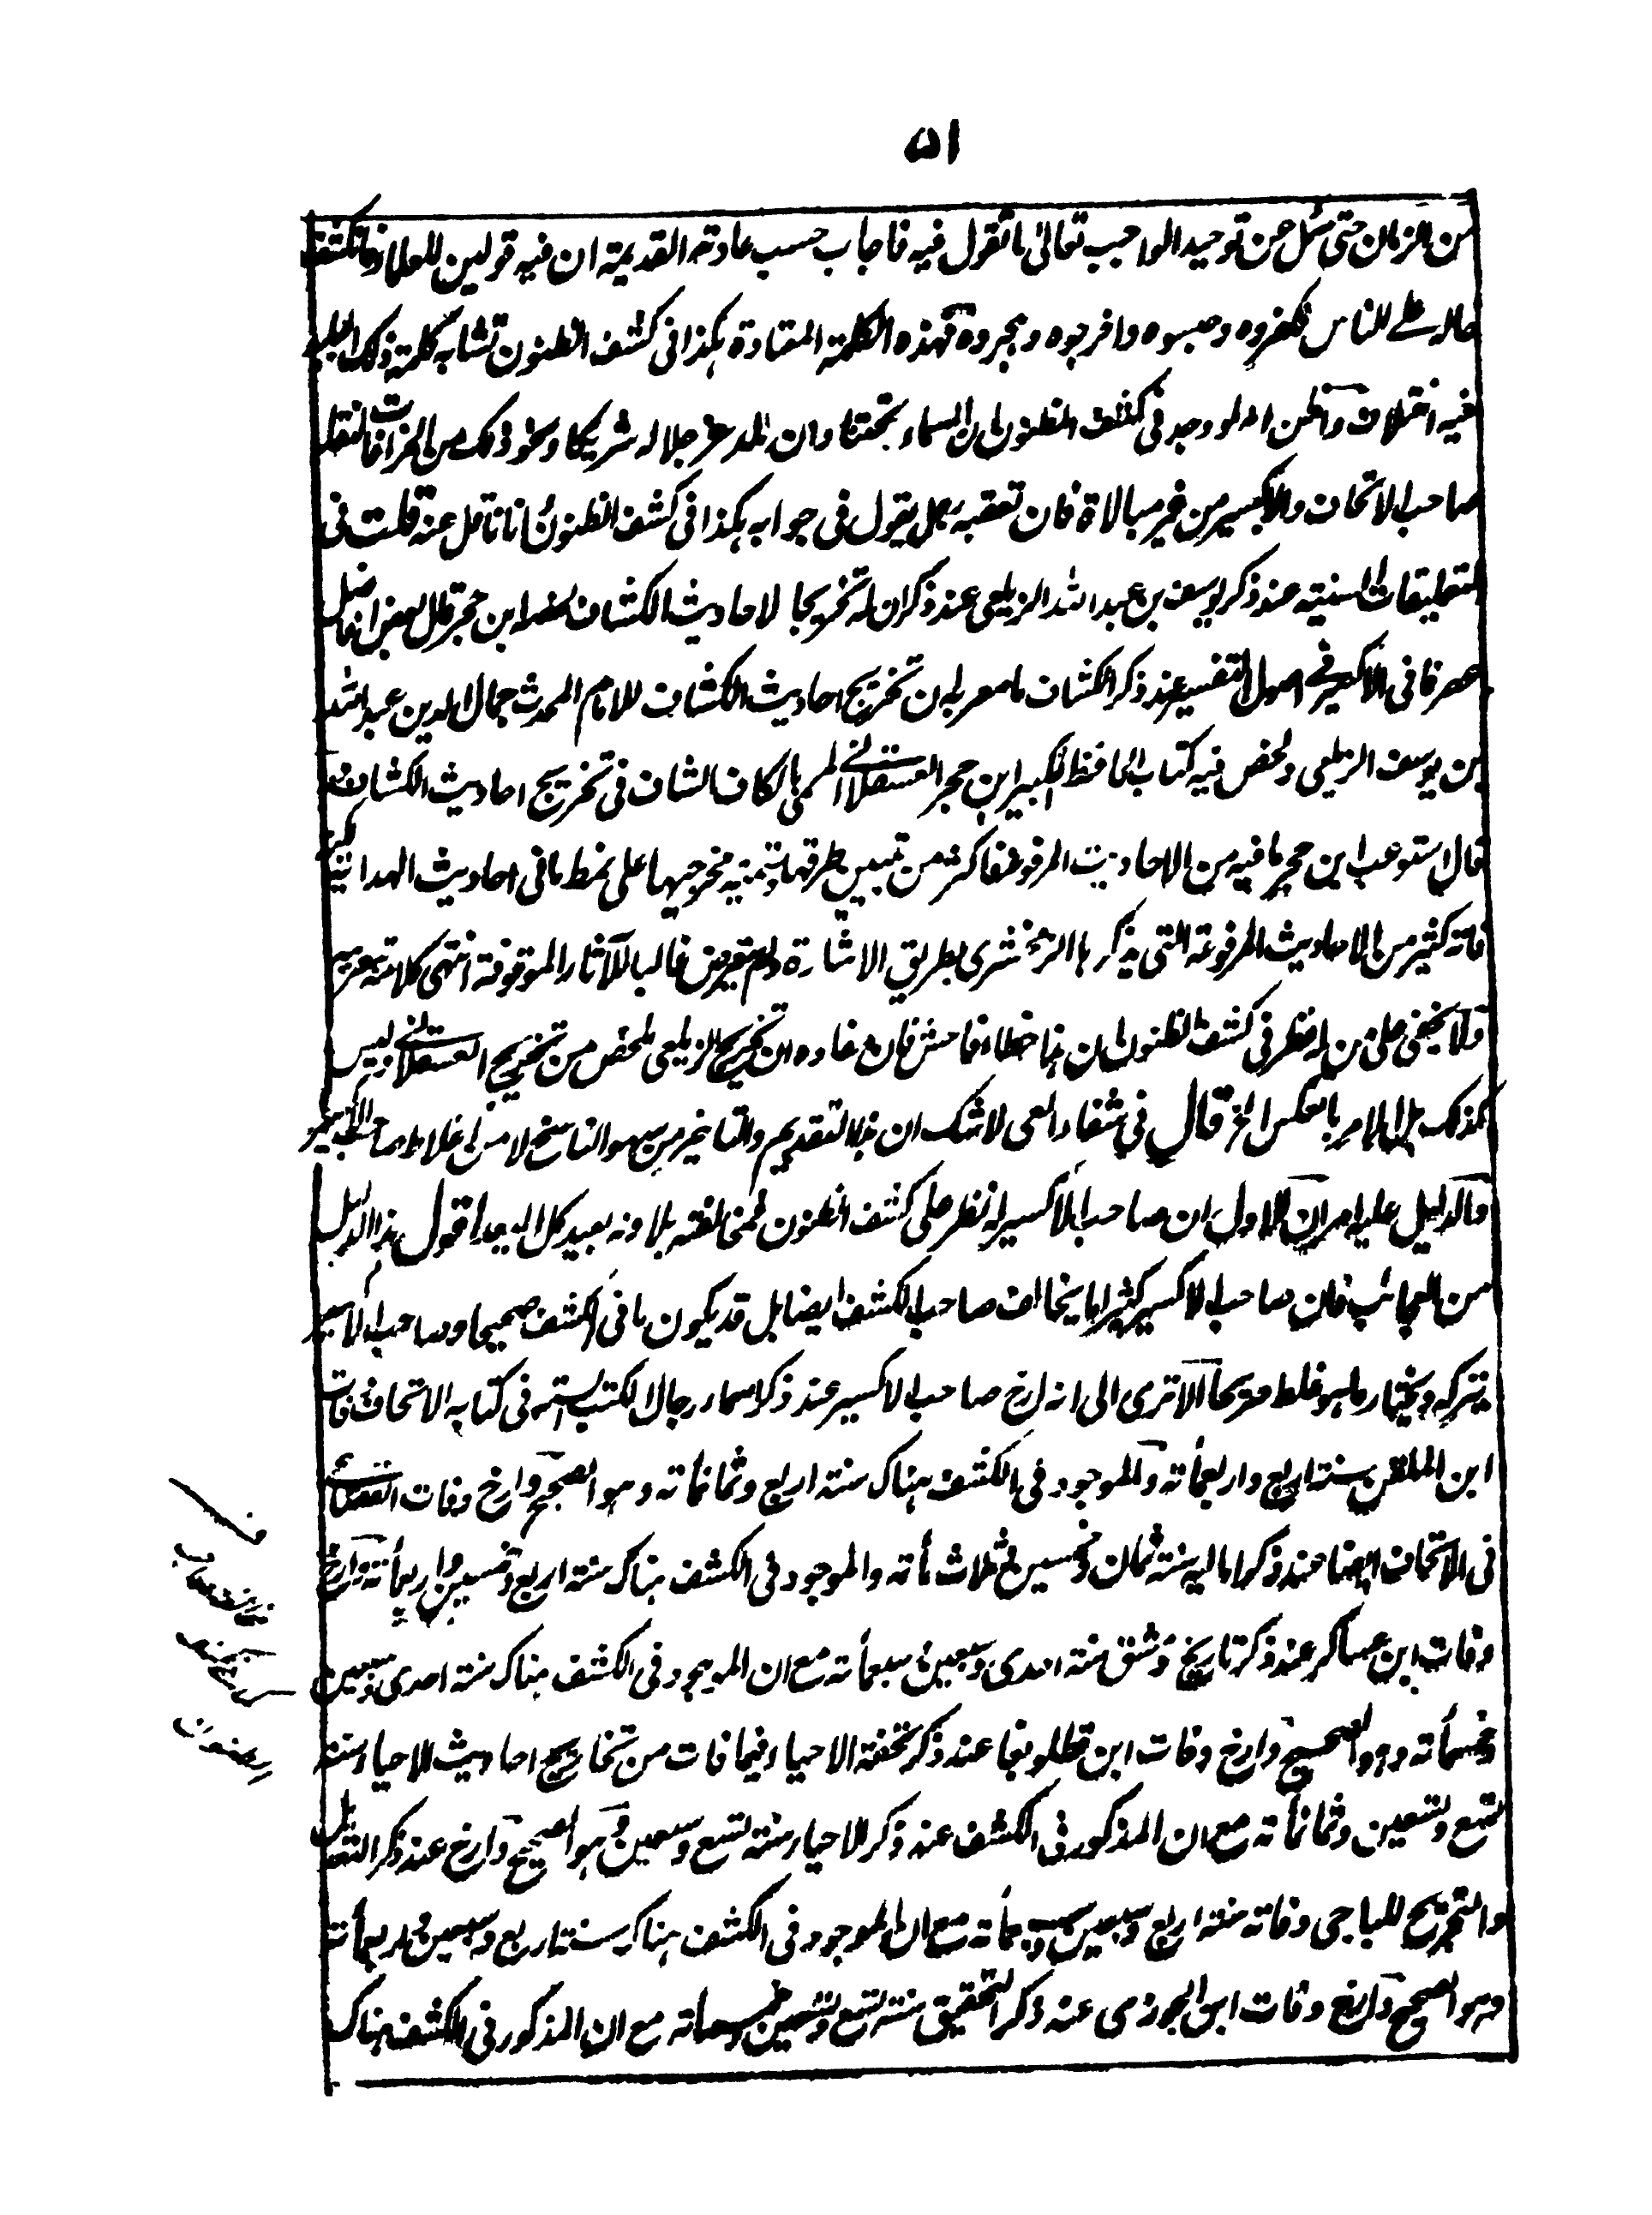 ٥١
من الزمان حتى سئل عن توحيد الواجب تعالى ما تقول فيه فاجاب حسب عادته القديمة ان فيه قولين للعلماء فانكشف
حاله على الناس فكفروه وحبسوه واخرجوه وهجروه فهذه الكلمة المعتادة هكذا فى كشف الظنون تشابه كلمة ذلك
فيه اختلاف واظن انه لو وجد فى كشف الظنون ان السماء تحتنا وان لله عز جلاله شريكا ونحو ذلك من الخرافات لنقله
صاحب الاتحاف والاكسير من غير مبالاة فان تعقبه رجل يقول فى جوابه هكذا فى كشف الظنون انا ناقل عنه قلت فى
التعليقات السنية عند ذكر يوسف بن عبد الله الزيلعى عند ذكر ان له تخريجا لاحاديث الكشاف لخصه ابن حجر قال بعض افاضل
عصرنا فى الاكسير فى اصول التفسير عند ذكر الكشاف ما معربه ان تخريج احاديث الكشاف للامام المحدث جمال الدين عبد الله
بن يوسف الزيلعى ولخص فيه كتاب الحافظ الكبير ابن حجر العسقلانى المسمى بالكاف الشاف فى تخريج احاديث الكشاف
قال استوعب ابن حجر ما فيه من الاحاديث المرفوعة فاكثر من تبيين طرقها وتسمية مخرجيها على نمط ما فى احاديث الهداية لكنه
فاته كثير من الاحاديث المرفوعة التى يذكرها الزمخشرى بطريق الاشارة ولم يتعرض غالبا للآثار الموقوفة انتهى كلامه معربا
ولا يخفى على من له نظر فى كشف الظنون ان هذا خطاء فاحش فان مفاده ان تخريج الزيلعى ملخص من تخريج العسقلانى وليس
كذلك بل الامر بالعكس الخ قال فى شفاء العى لا شك ان هذا التقديم والتاخير من سهو الناسخ لا من اغلاط صاحب الاكسير
والدليل عليه امران الاول ان صاحب الاكسير له نظر على كشف الظنون فمخالفته بلا وجه بعيد كل البعد اقول هذا الدليل
من العجائب فان صاحب الاكسير كثيرا ما يخالف صاحب الكشف ايضا بل قد يكون ما فى الكشف صحيحا وصاحب الاكسير
يتركه ويختار ما هو غلط صريحا الا ترى الى انه ارخ صاحب الاكسير عند ذكر اسماء رجال الكتب الستة فى كتابه الاتحاف وفات
ابن الملقن سنة اربع واربعمأته والموجود فى الكشف هناك سنة اربع وثمانمأته وهو الصحيح وارخ وفات القضاعى
فى الاتحاف ايضا عند ذكر اماليه سنة ثمان وخمسين وثلاث مأته والموجود فى الكشف هناك سنة اربع وخمسين واربعمأته وارخ
وفات ابن عساكر عند ذكر تاريخ دمشق سنة احدى وسبعين وسبعمأته مع ان الموجود فى الكشف هناك سنة احدى وسبعين
وخمسمأته وهو الصحيح وارخ وفات ابن قطلوبغا عند ذكر تحفة الاحياء فيما فات من تخاريج احاديث الاحياء سنة
تسع وتسعين وثمانمأته مع ان المذكور فى الكشف عند ذكر الاحياء سنة تسع وسبعين وهو الصحيح وارخ عند ذكر التعديل
والتجريح للباجى وفاته سنة اربع وسبعين وسبعمأته مع ان الموجود فى الكشف هناك سنة اربع وسبعين واربعمأته
وهو الصحيح وارخ وفات ابن الجوزى عند ذكر التحقيق سنة تسع وتسعين وخمسمأته مع ان المذكور فى الكشف هناك